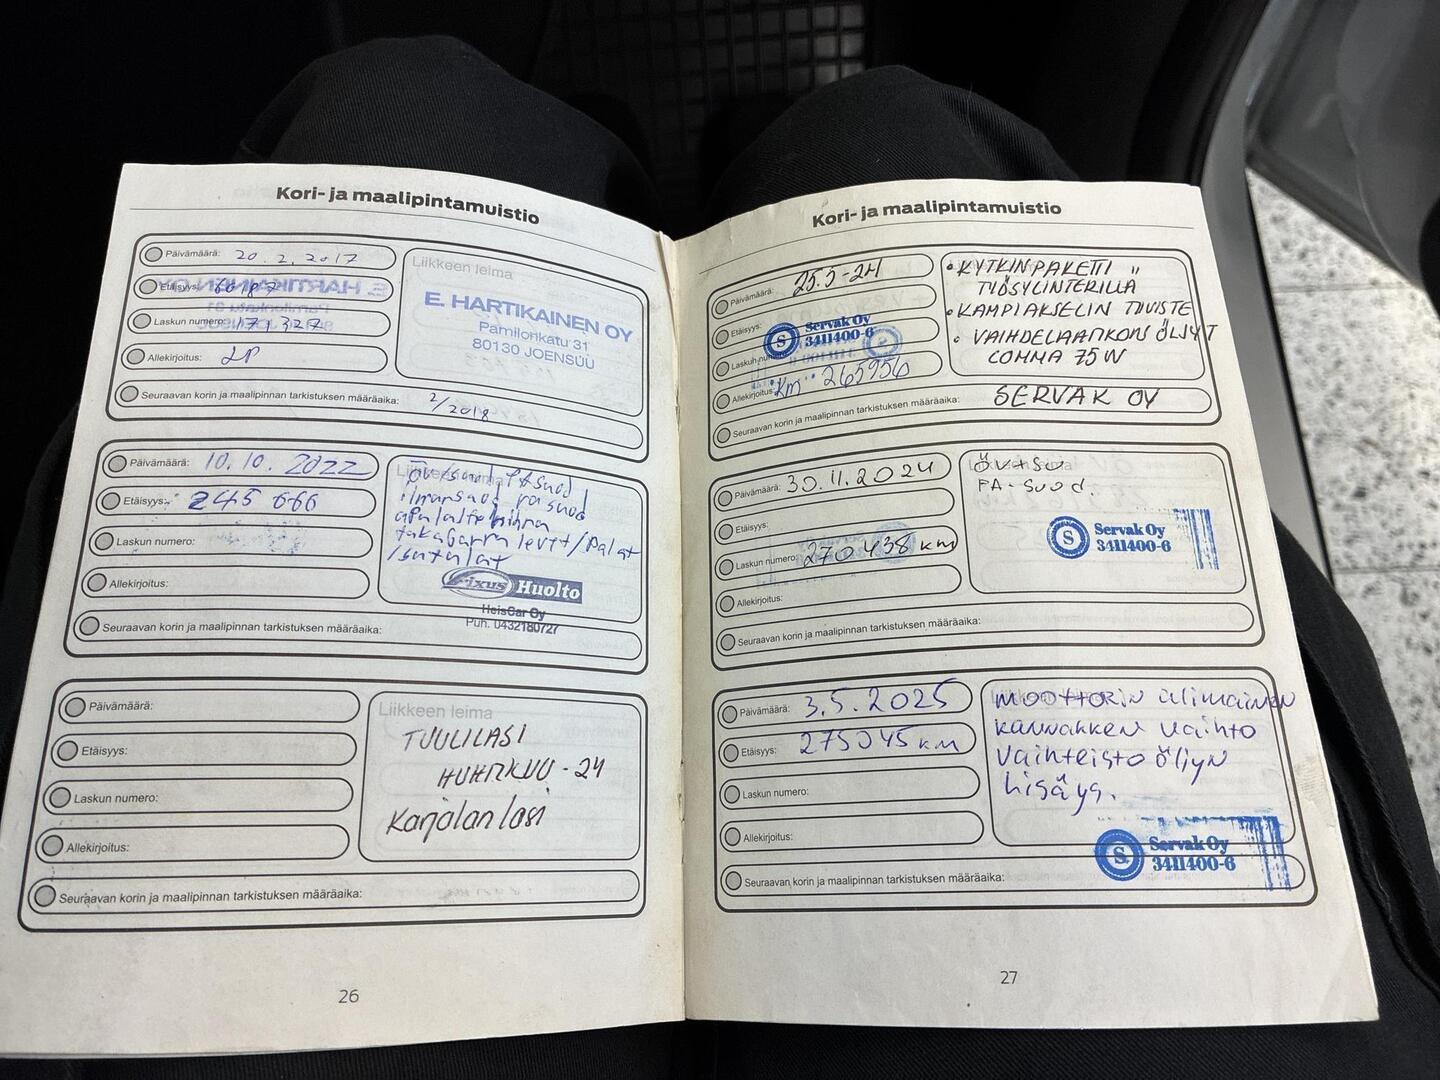 Kori- ja maalipintamuistio
Päivämäärä: 20.2.2017
Etäisyys:
Laskun numero: 171327
Allekirjoitus:
Seuraavan korin ja maalipinnan tarkistuksen määräaika: 2/2018
Liikkeen leima
E. HARTIKAINEN OY
Pamilonkatu 31
80130 JOENSUU
Päivämäärä: 10.10.2022
Etäisyys: 245 666
Laskun numero:
Allekirjoitus:
Seuraavan korin ja maalipinnan tarkistuksen määräaika:
ilmansuod
takajarru levyt/palat
/satulat
Fixus Huolto
HeisCar Oy
Puh. 0432180727
Päivämäärä:
Etäisyys:
Laskun numero:
Allekirjoitus:
Seuraavan korin ja maalipinnan tarkistuksen määräaika:
Liikkeen leima
TUULILASI
HUHTIKUU - 24
Karjalan lasi
26
Kori- ja maalipintamuistio
Päivämäärä: 25.5-24
Etäisyys:
Servak Oy
3411400-6
Allekirjoitus: Km 265956
Seuraavan korin ja maalipinnan tarkistuksen määräaika: SERVAK OY
• KYTKINPAKETTI "
TYÖSYLINTERILLÄ
• KAMPIAKSELIN TIIVISTE
• VAIHDELAATIKON ÖLJYT
COMMA 75W
Päivämäärä: 30.11.2024
Etäisyys:
Laskun numero: 270438 km
Allekirjoitus:
Seuraavan korin ja maalipinnan tarkistuksen määräaika:
PA-suod.
Servak Oy
3411400-6
Päivämäärä: 3.5.2025
Etäisyys: 275045 km
Laskun numero:
Allekirjoitus:
Seuraavan korin ja maalipinnan tarkistuksen määräaika:
moottorin alimmainen
kannakkeen vaihto
vaihteisto öljyn
lisäys.
Servak Oy
3411400-6
27